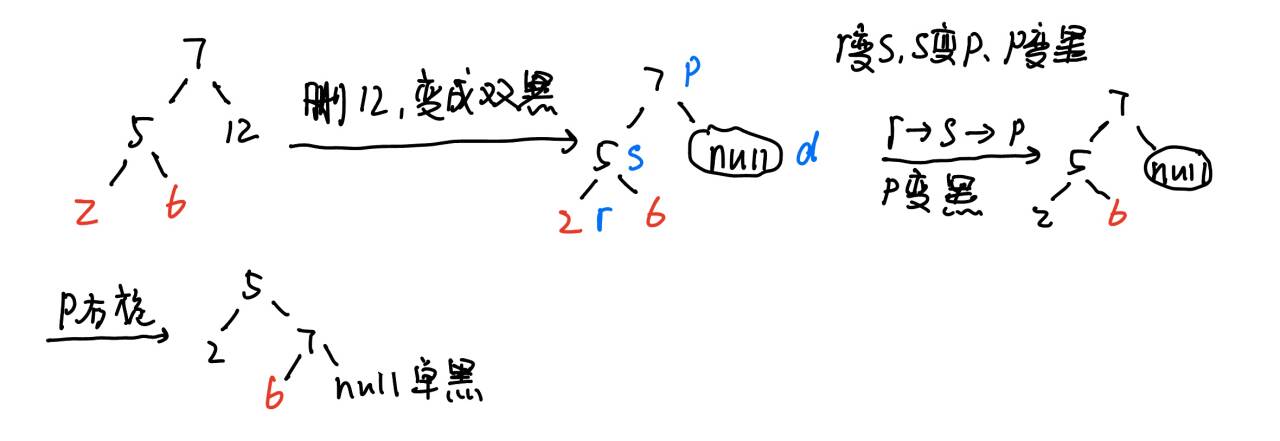 7
5 12
2 6
删12,变成双黑
7 p
5 s null d
2 r 6
r变s,s变p、p变黑
r→s→p
p变黑
7
5 null
2 6
p右旋
5
2 7
6 null 单黑